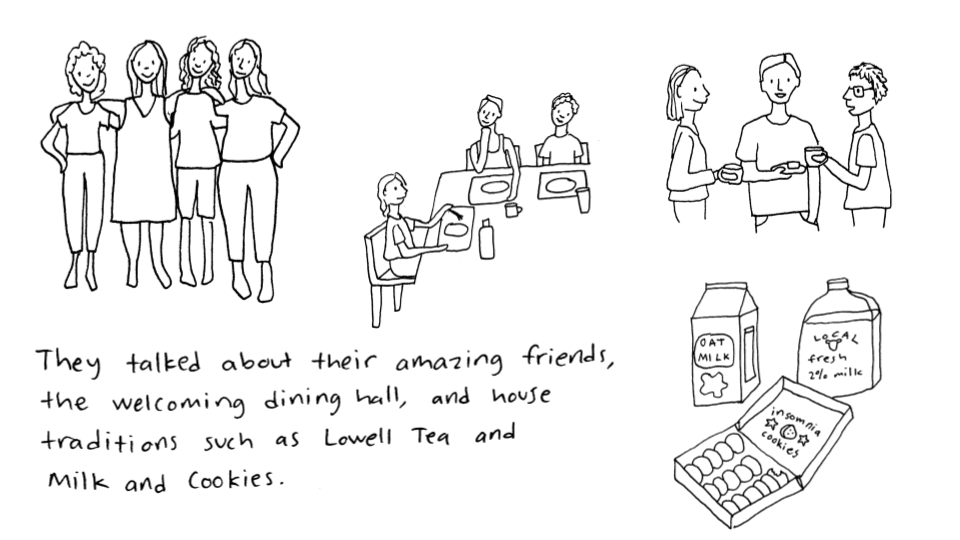 They talked about their amazing friends,
the welcoming dining hall, and house
traditions such as Lowell Tea and
Milk and Cookies.
OAT
MILK
LOCAL
fresh
2% milk
insomnia
cookies